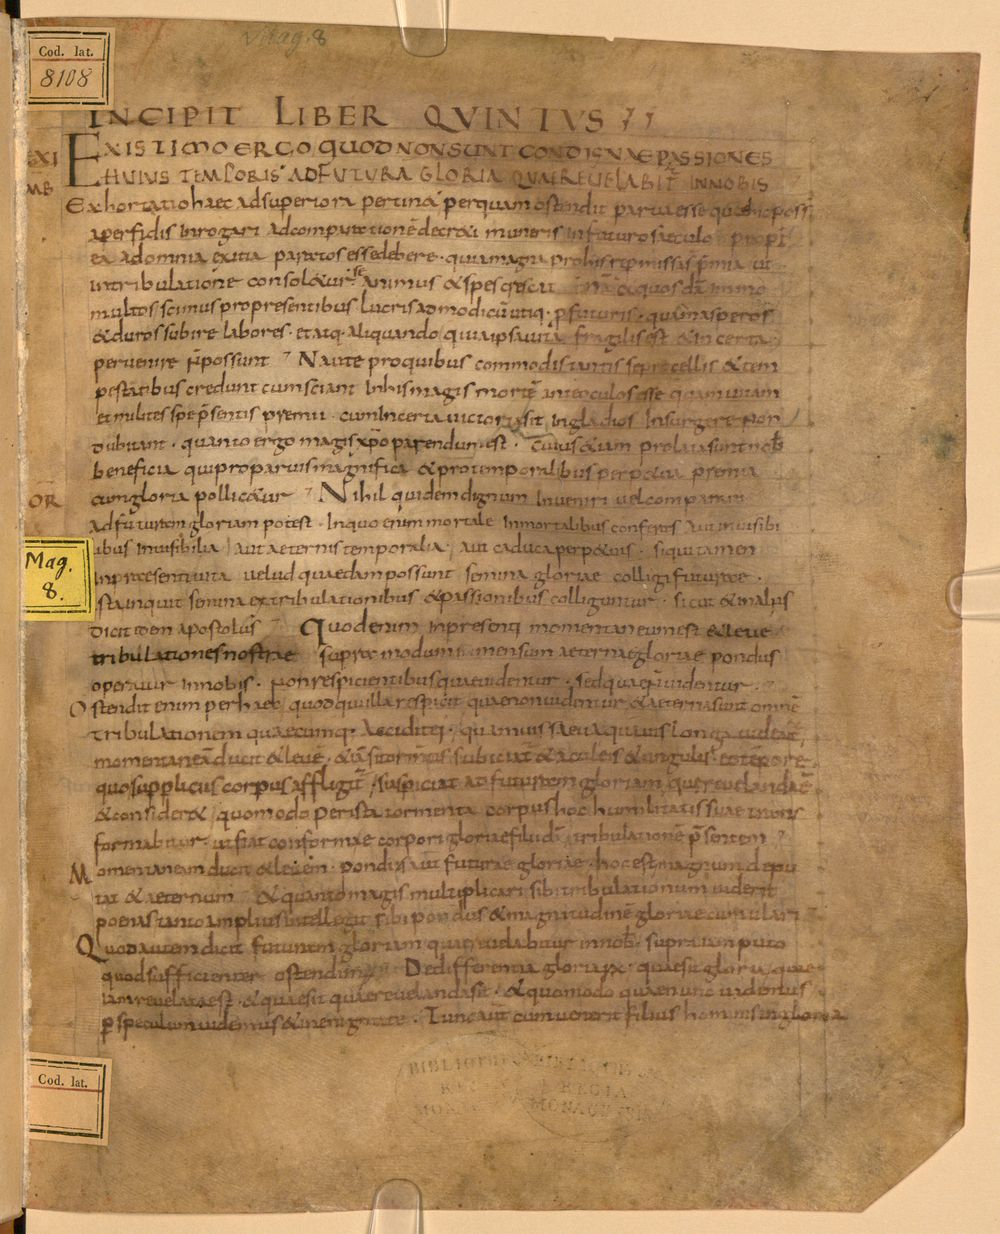 Mag. 8
Cod. lat.
8108
INCIPIT LIBER QVINTVS
EXI
EXISTIMO ERGO QUOD NON SUNT CONDIGNAE PASSIONES
MB
HUIUS TEMPORIS AD FUTURA GLORIA QUAE REUELABIT IN NOBIS
Exhortatio haec ad superiora pertinᷓ perquam ostendit parua esse quae hic poss
a perfidis inrogari ad comparationē decreti muneris in futuro saeculo
ea ad omnia exitia paratos esse debere · quia magna pro his repmissis p̄mia ut
in tribulatione consol&ur animus & spes crescat & quosdā immo
multos scimus pro presentibus lucris ad modicū utiq· p futuris · quamasperos
& duros subire labores · et atq· aliquando quia ipsa uita fragilis est & incerta
peruenire ñ possunt Nautae pro quibus commodis tantis se procellis & tem
pestatibus credunt cum sciant in his magis mortē in oculos esse quam uitam
et milites spe p̄sentis premii · cum incerta uictoria sit in gladios insurgere non
dubitant · quanto ergo magis xp̄o parendum est · cuius &iam prolata sunt nob̄
beneficia qui pro paruis magnifica & pro temporalibus perp&ua premia
OR
cum gloria pollic&ur Nihil quidem dignum inueniri uel comparari
ad futuram gloriam potest · In quo enim mortale inmortalibus conferes aut inuisibi
libus inuisibilia aut aeternis temporalia · aut caduca perp&uis · si qui tamen
Mag.
8.
in praesenti uita uelud quaedam possunt semina gloriae colligi futurae ·
ista inquit semina ex tribulationibus & passionibus colliguntur · sicut & in aliis
dicit idem apostolus Quod enim in presenti momentaneum est & leue
tribulationes nostrae supra modum inmensum aeternae gloriae pondus
operatur in nobis · non respicientibus quae uidentur · sed quae ñ uidentur ·
Ostendit enim per haec quod qui illa respicit quae non uidentur & aeterna sunt omnē
tribulationem quaecumq· acciderit ei · quamuis saeua quamuis longa
momentaneā ducit & leuē · &iā si tormentis subiciat̄ & aculeis & ungulis
quo suppliciis corpus affligit̄ suspiciat ad futuram gloriam quae reuelanda ē
& consider& quomodo per ista tormenta corpus hoc humilitatis suae trans
formabitur · ut fiat conformae corpori gloriae filii dī tribulationē p̄sentem
Momentaneam ducit & leuem · pondus aut̄ futurae gloriae · hoc est magnum depu
tat & aeternum & quanto magis multiplicari sibi tribulationum uiderit
poenas tanto amplius intellegit sibi pondus & magnitudinē gloriae cumulari
Quod autem dicit futuram gloriam quae reuelabitur in nob̄ · supra iam puto
quod sufficienter ostendim De differentia gloriae · quae sit gloria quae
iam reuelata est · & quae sit quae reuelanda sit · & quomodo quae nunc uidemus
p speculum uidemus & in enigmate · Tunc aut̄ cum uenerit filius hominis in gloria
Cod. lat.
BIBLIOTHECA
REGIA
MONACENSIS